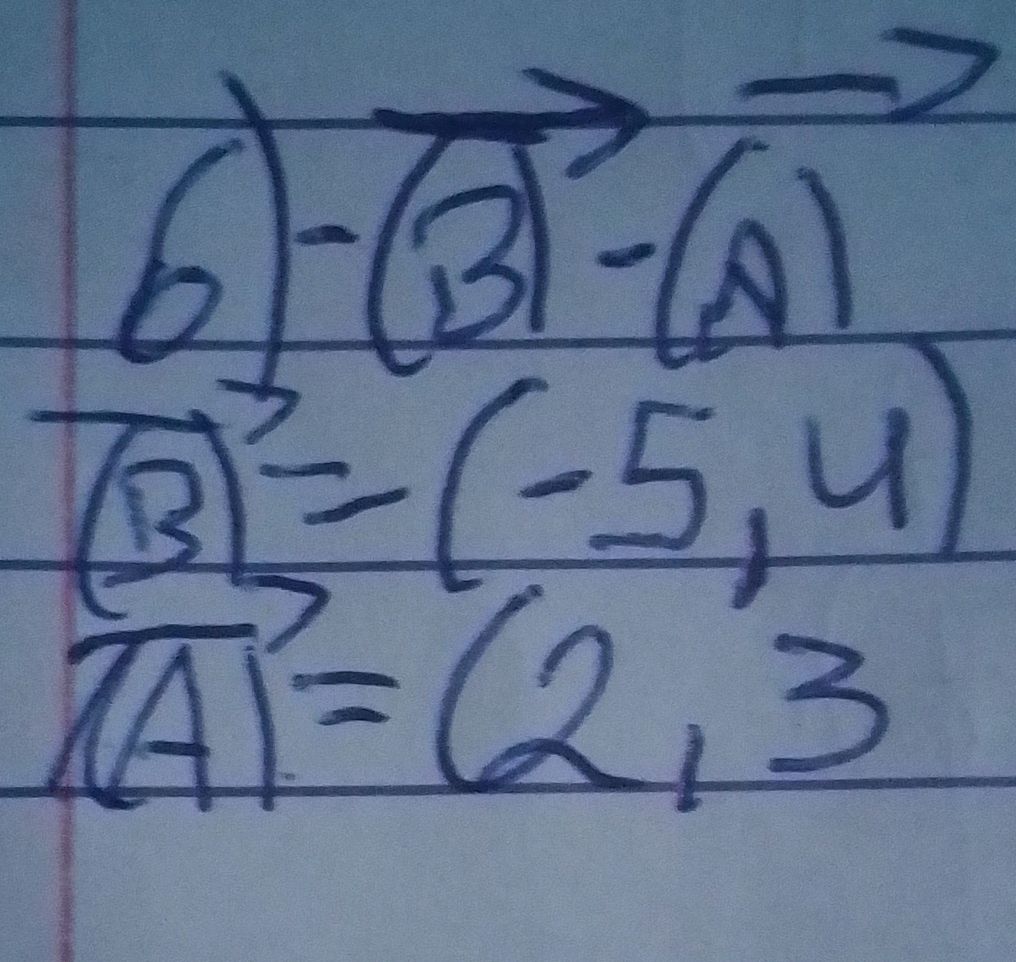 6) -(B⃗) - (A⃗)
(B⃗) = (-5, 4)
(A⃗) = (2, 3